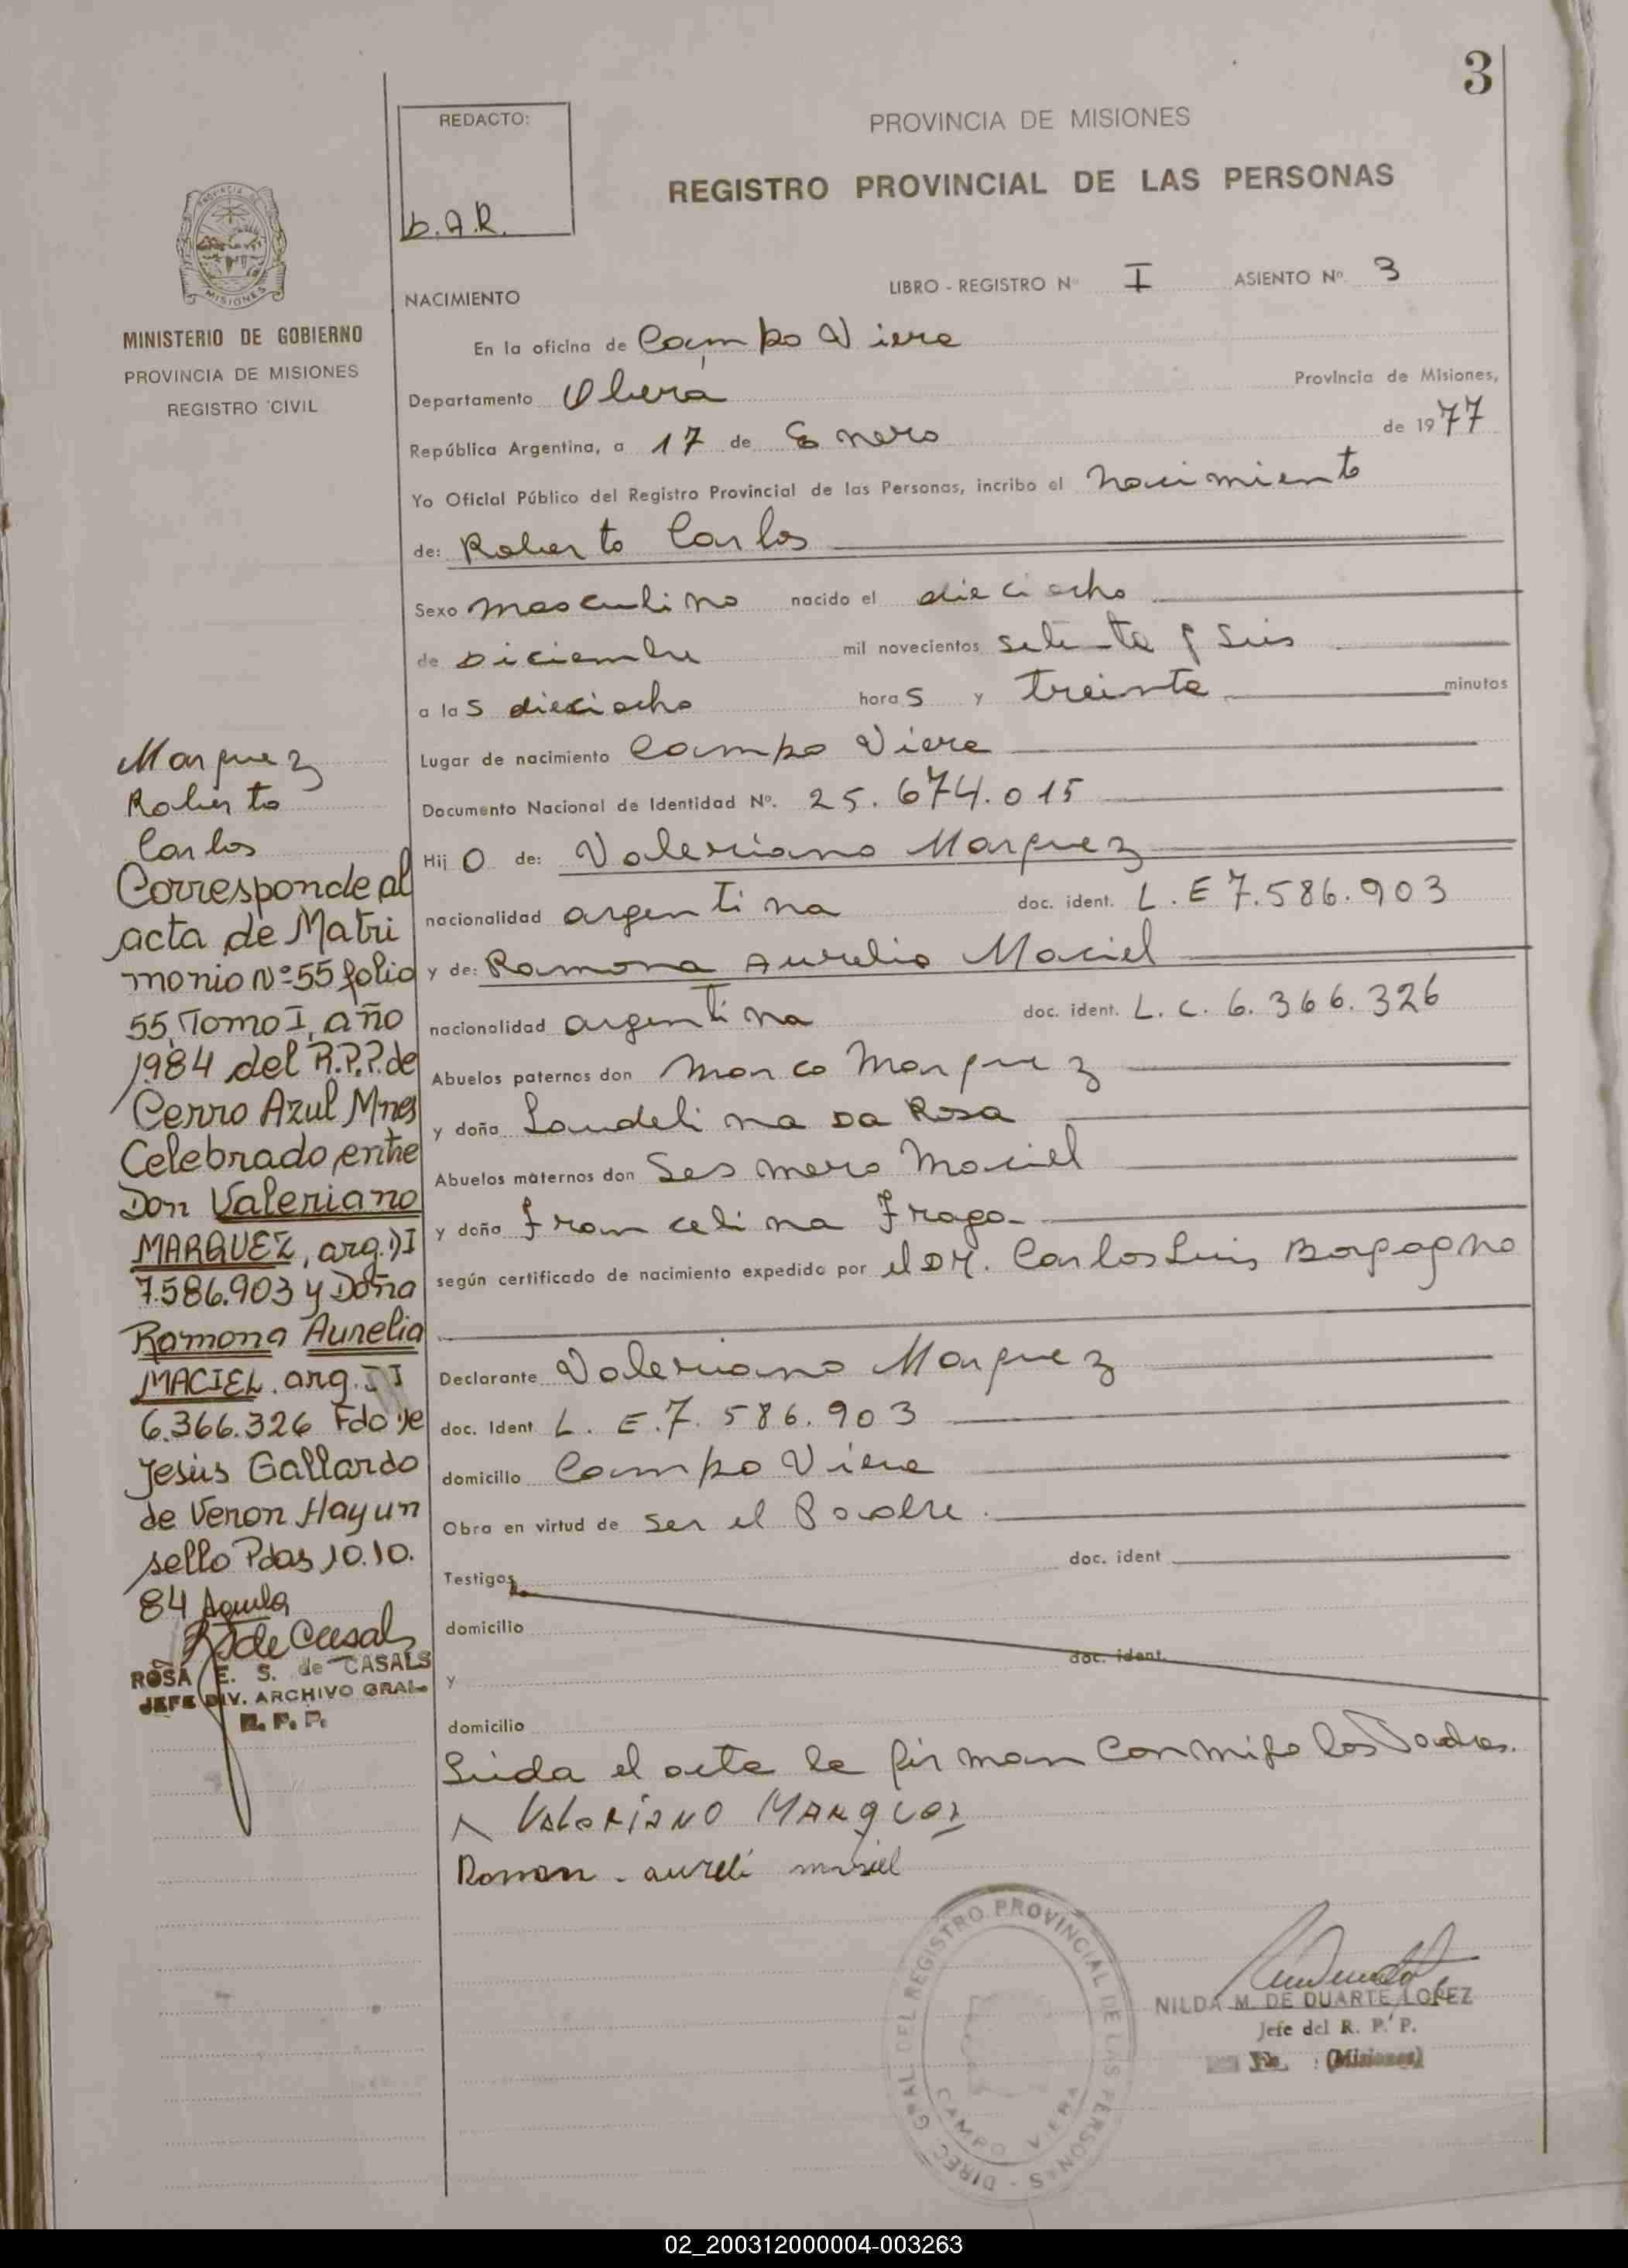 3
REDACTO:
b.A.R.
PROVINCIA DE MISIONES
REGISTRO PROVINCIAL DE LAS PERSONAS
PROVINCIA DE
MISIONES
MINISTERIO DE GOBIERNO
PROVINCIA DE MISIONES
REGISTRO CIVIL
LIBRO - REGISTRO Nº I ASIENTO Nº 3
NACIMIENTO
En la oficina de Campo Viera
Departamento Oberá Provincia de Misiones,
República Argentina, a 17 de Enero de 1977
Yo Oficial Público del Registro Provincial de las Personas, incribo el nacimiento
de: Roberto Carlos
Sexo masculino nacido el dieciocho
de Diciembre mil novecientos setenta y seis
a las dieciocho horas y treinta minutos
Lugar de nacimiento Campo Viera
Documento Nacional de Identidad Nº. 25.674.015
Hijo de: Valeriano Marquez
nacionalidad argentina doc. ident. L.E 7.586.903
y de: Ramona Aurelia Maciel
nacionalidad argentina doc. ident. L.C. 6.366.326
Abuelos paternos don Marco Marquez
y doña Laudelina Da Rosa
Abuelos maternos don Sesmero Maciel
y doña Francelina Fraga
según certificado de nacimiento expedido por el Dr. Carlos Luis
Declarante Valeriano Marquez
doc. Ident. L.E.7.586.903
domicilio Campo Viera
Obra en virtud de ser el Padre.
Testigos doc. ident
domicilio
y doc. ident.
domicilio
Leida el acta la firman conmigo los Padres.
Valeriano Marquez
aureli
Marquez
Roberto
Carlos
Corresponde al
acta de Matri
monio Nº 55 folio
55, Tomo I, año
1984 del R.P.P. de
Cerro Azul Mnes
Celebrado entre
Don Valeriano
MARQUEZ, arg. DI
7.586.903 y Doña
Ramona Aurelia
MACIEL. arg. DI
6.366.326 Fdo De
Jesús Gallardo
de Veron Hay un
sello Pdas 10.10.
84 Aguila
ROSA E. S. de CASALS
JEFE DIV. ARCHIVO GRAL.
R. P. P.
DIREC. GRAL DEL REGISTRO PROVINCIAL DE LAS PERSONAS -
CAMPO VIERA
NILDA M. DE DUARTE LOPEZ
Jefe del R. P. P.
(Misiones)
02_200312000004-003263